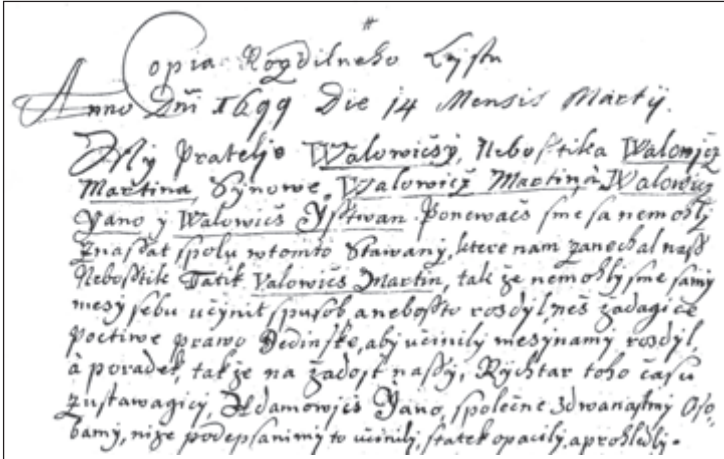 Copia Rozdilneho Lystu
Anno Dni 1699 Die 14 Mensis Martij.
My Pratelje Walowicsy, Neboſstika Walowicz
Martina, Synowe, Walowicz Martina, Walowicz
Yano y Walowics Yſstwan. Ponewacs ſme ſa nemohly
znaſsat ſpolu w tomto Stawany, ktere nam zanechal naſs
Neboſstik Tatik Valowics Martin, tak že nemohly ſme ſamy
mezy ſebu učynit ſpuſob aneboſsto rosdyl, než žadagicze
Poctiwe prawo Dedinſke, aby učinily mesy namy rosdyl,
à poradek, tak že na žadoſt naſsy, Rychtar toho čaſu
zuſtawagicy, Adamowics Yano, ſpolečne z dwanaſtmy Oſo,
bamy, niže podepſanimy to učinily, ſtatek opacily, a prohledly.